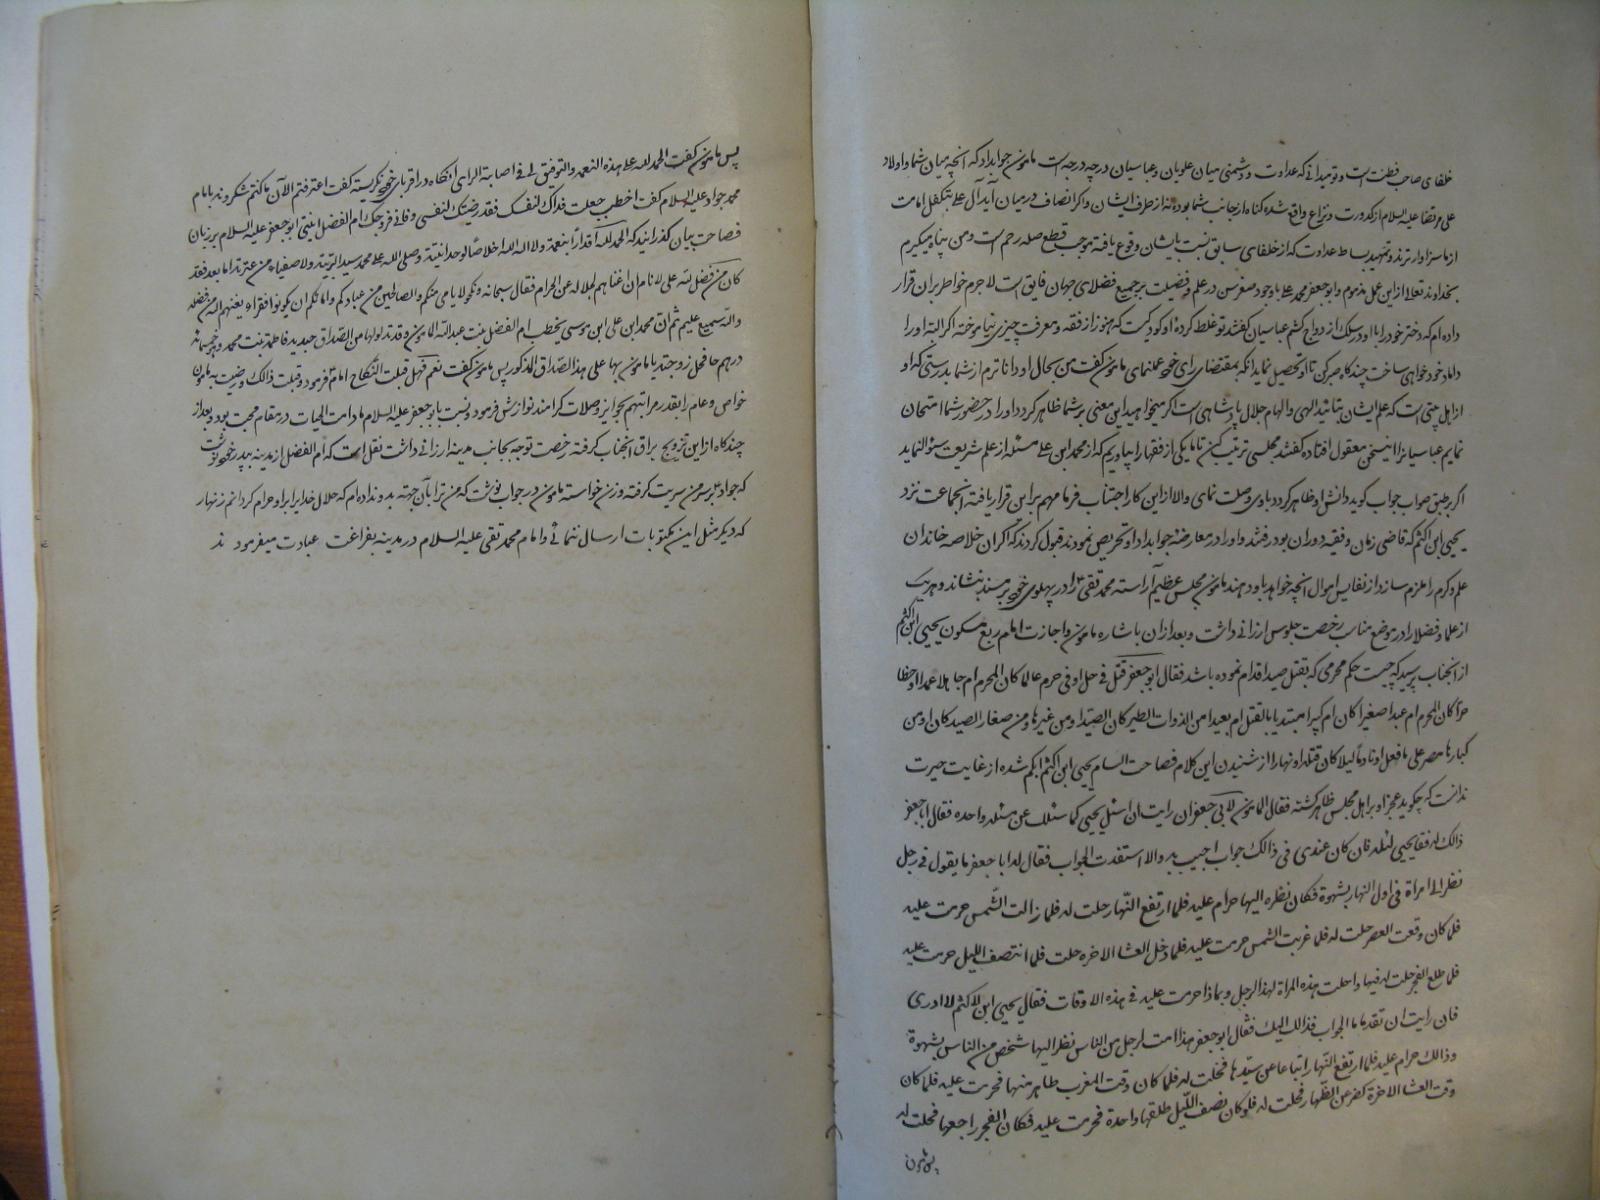 خلفای صاحب فطنت است و تو میدانی که عداوت و دشمنی میان علویان و عباسیان درچه درجه است مامون جواب داد که آنچه میان شما و اولاد
علی مرتضی علیه السلام از کدورت و نزاع واقع شده کناه از جانب شما بوده نه از طرف ایشان و اکر انصاف در میان آید آل علی بتکفل امامت
از ما سزاوارترند و تمهید بساط عداوت که از خلفای سابق نسبت بایشان وقوع یافته موجب قطع صله رحم است و من پناه میکیرم
بخداوند تعالی از این عمل مذموم و ابو جعفر محمد علی با وجود صغر سن در علم و فضیلت بر جمیع فضلای جهان فایق است لاجرم خواطر بر ان قرار
داده ام که دختر خود را با او در سلک ازدواج کشم عباسیان کفتند تو غلط کردهٔ او کودکیست که هنوز از فقه و معرفت چیزی نیاموخته اکر البته او را
داماد خود خواهی ساخت چندکاه صبر کن تا او تحصیل نماید انکه بمقتضای رای خود عمل نمای مامون کفت من بحال او داناترم از شما بدرستی که او
از اهل بیتی است که علم ایشان بتائید الهی و الهام جلال پادشاهی است اکر میخواهید این معنی بر شما ظاهر کردد او را در حضور شما امتحان
نمایم عباسیانرا این سخن معقول افتاده کفتند مجلسی ترتیب کن تا ما یکی از فقها را بیاوریم که از محمد ابن علی مسئله از علم شریعت سئوال نماید
اکر بطبق صواب جواب کوید دانش او ظاهر کردد با وی وصلت نمای والا از این کار اجتناب فرما مهم بر این قرار یافته انجماعت نزد
یحیی ابن اکثم که قاضی زمان و فقیه دوران بود رفتند و او را در معارضهٔ جواد تحریص نمودند قبول کردند که اکر ان خلاصه خاندان
علم و کرم را ملزم سازد از نفایس اموال انچه خواهد باو دهند مامون مجلس عظیم آراسته محمد تقی را در پهلوی خود بر مسند بنشاند و هر یک
از علما و فضلا را در موضع مناسب رخصت جلوس ارزانی داشت و بعد از ان باشاره مامون و اجازت امام ربع مسکون یحیی ابن اکثم
از انجناب پرسید که چیست حکم محرمی که بقتل صید اقدام نموده باشد فقال ابو جعفر قتل فی حل او فی حرم عالما کان المحرم ام جاهلا عمدا او خطا
حرّا کان المحرم ام عبدا صغیرا کان ام کبیرا مبتدیا بالقتل ام بعیدا من الذوات الطیر کان الصید او من غیرها و من صغار الصید کان او من
کبارها مصر علی ما فعل او نادما لیلا کان قتله او نهارا از شنیدن این کلام فصاحت السام یحیی ابن اکثم ابکم شده از غایت حیرت
ندانست که چکوید عجز او بر اهل مجلس ظاهر کشته فقال المامون لابی جعفر ان رایت ان اسئل یحیی کما سئلک عن مسئله واحده فقال ابا جعفر
ذالک له فقال یحیی لسئله فان کان عندی فی ذالک جواب اجیب به والا استفدت الجواب فقال له ابا جعفر ما یقول فی رجل
نظر الی امراة فی اول النهار بشهوة فکان نظره الیها حرام علیه فلما ارتفع النّهار حلت له فلما زالت الشّمس حرمت علیه
فلما کان وقعت العصر حلت له فلما غربت الشمس حرمت علیه فلما دخل العشا الاخره حلت فلما انتصف اللیل حرمت علیه
فلما طلع الفجر حلت له فبما ذا حلت هذه المراة لهذا الرجل و بماذا حرمت علیه فی هذه الاوقات فقال یحیی ابن الاکثم لا ادری
فان رایت ان تقدما ما الجواب فذالک الیک فقال ابو جعفر هذا امت لرجل من الناس نظر الیها شخص من الناس بشهوة
و ذالک حرام علیه فلما ارتفع النّهار ابتاعا عن سیّدها فحلت له فلما کان وقت المغرب ظاهر منها فحرمت علیه فلما کان
وقت العشا الاخرة کفر عن الظّهار فحلت له فلو کان نصف اللّیل طلقها واحدة فحرمت علیه فکان الفجر راجعها فحلت له
پس مامون
پس مامون کفت الحمد لله علی هذه النعمه و التوفیق لی فی اصابة الرای انکاه در اقربای خود نکریسته کفت اعترفتم الان ما کنتم شکروند با امام
محمد جواد علیه السلام کفت اخطب جعلت فداک لنفسک فقد رضیتک لنفسی و فانی زوجک ام الفضل ابنتی ابو جعفر علیه السلام بر زبان
فصاحت بیان کذرانید که الحمد لله اقدارا بنعمة و لا اله الله اخلاصًا لوحدانیتة و صلی الله علی محمد سید البریّة و لاصفیاء من عترته اما بعد فقد
کان من فضل لله علی لانام ان اغناهم بالحلال عن الحرام فقال سبحانه و نکحو لایامی منکم و الصالحین من عبادکم و امائکم ان یکونو افقراء یغنهم الله من فضله
والله سمیع علیم ثم ان محمد ابن علی ابن موسی یخطب ام الفضل بنت عبدالله المامون و قد تدلولها من الصّداق جدیده فاطمة بنت محمد و هو خمسماته
درهم جا فحل زوجتد یا مامون بها علی هذا الصّداق المذکور پس مامون کفت نعم فهل قبلت النّکاح امام فرمود و قبلت ذالک و رضیت به مامون
خواص و عام را بقدر مراتبهم بجوایز و صلات کرامند نوازش فرمود و نسبت بابو جعفر علیه السلام مادامت الحیات در مقام محبت بود و بعد از
چندکاه از این تزویج براق انجناب کرفته رخصت توجه بجانب مدینه ارزانی داشت نقل است که ام الفضل از مدینه بپدر خود نوشت
که جواد بر سر من سریت کرفته و زن خواسته مامون در جواب نوشت که من ترا بآن جهته بدو نداده ام که حلال خدایرا بر او حرام کردانم زنهار
که دیکر مثل این مکتوبات ارسال ننمائی و امام محمد تقی علیه السلام در مدینه بفراغت عبادت میفرمودند